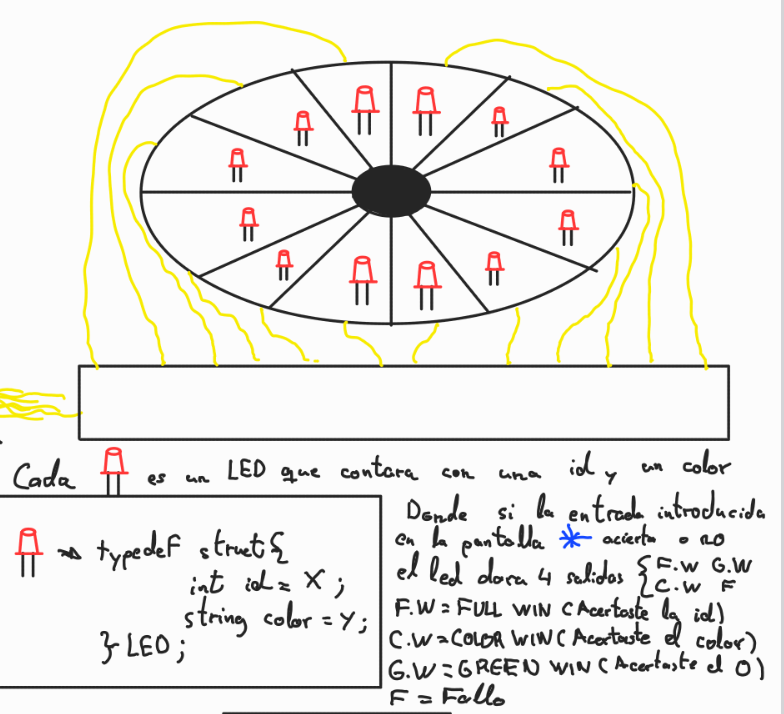 Cada es un LED que contara con una id y un color
typedef struct{
int id = X ;
string color = Y;
} LED ;
Donde si la entrada introducida
en la pantalla acierta o no
el led dara 4 salidas { F.W G.W
{ C.W F
F.W = FULL WIN (Acertaste la id)
C.W = COLOR WIN (Acertaste el color)
G.W = GREEN WIN (Acertaste el 0)
F = Fallo